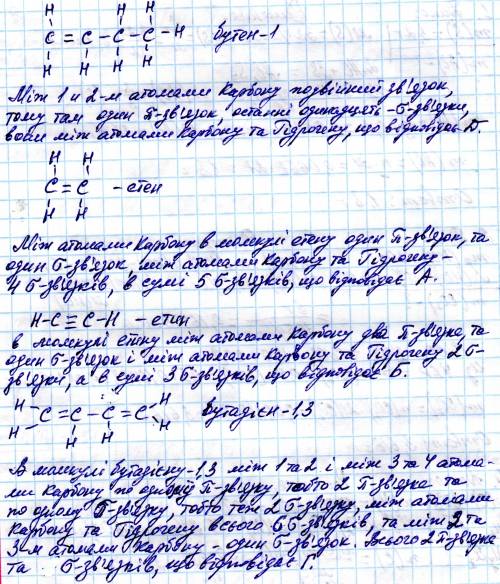 H H H H
C = C - C - C - H бутен-1
H H H H
Між 1 и 2-м атомами Карбону подвійний зв'язок,
тому там один π-зв'язок, останні одинадцять - б-зв'язки,
вони між атомами Карбону та Гідрогену, що відповідає Д.
H H
C = C - етен
H H
Між атомами Карбону в молкулі етену один π-зв'язок, та
один б-зв'язок, між атомами Карбону та Гідрогену -
4 б-зв'язків, в сумі 5 б-зв'язків, що відповідає А.
H-C≡C-H - етин
в молекулі етину між атомами Карбону два π-зв'язка, та
один б-зв'язок і між атомами Карбону та Гідрогену 2 б-
зв'язки, а в сумі 3 б-зв'язків, що відповідає Б.
H H
C = C - C = C бутадієн-1,3
H H H H
В молкулі бутадієну-1,3 між 1 та 2 і між 3 та 4 атома-
ми Карбону по одному π-зв'язку, тобто 2 π-зв'язка та
по одному б-зв'язку, тобто теж 2 б-зв'язку, між атомами
Карбону та Гідрогену всього 6 б-зв'язків, та між 2 та
3-м атомами Карбону - один б-зв'язок. Всього 2 π-зв'язка
та б-зв'язків, що відповідає Г.